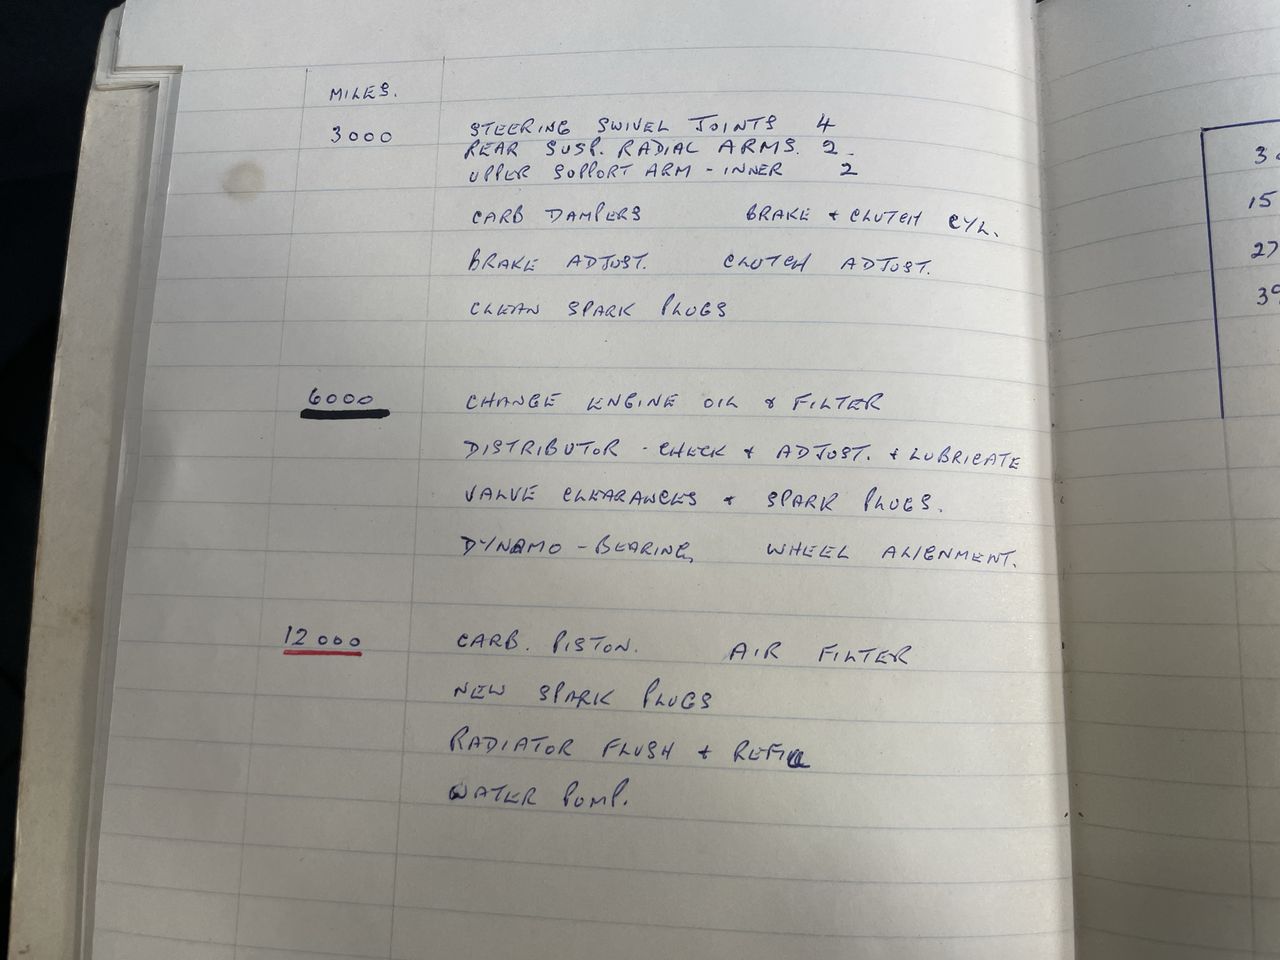 MILES.
3000 STEERING SWIVEL JOINTS 4
REAR SUSP. RADIAL ARMS. 2.
UPPER SUPPORT ARM - INNER 2
CARB DAMPERS BRAKE & CLUTCH CYL.
BRAKE ADJUST. CLUTCH ADJUST.
CLEAN SPARK PLUGS
6000 CHANGE ENGINE OIL & FILTER
DISTRIBUTOR - CHECK & ADJUST. & LUBRICATE
VALVE CLEARANCES & SPARK PLUGS.
DYNAMO - BEARING, WHEEL ALIGNMENT.
12000 CARB. PISTON. AIR FILTER
NEW SPARK PLUGS
RADIATOR FLUSH & REFILL
WATER PUMP.
15
27